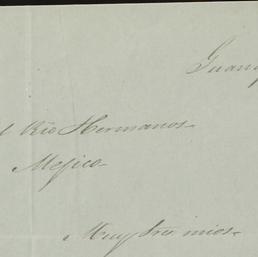 Guana
l Rio Hermanos.
Mejico.
Muy Sres mios.